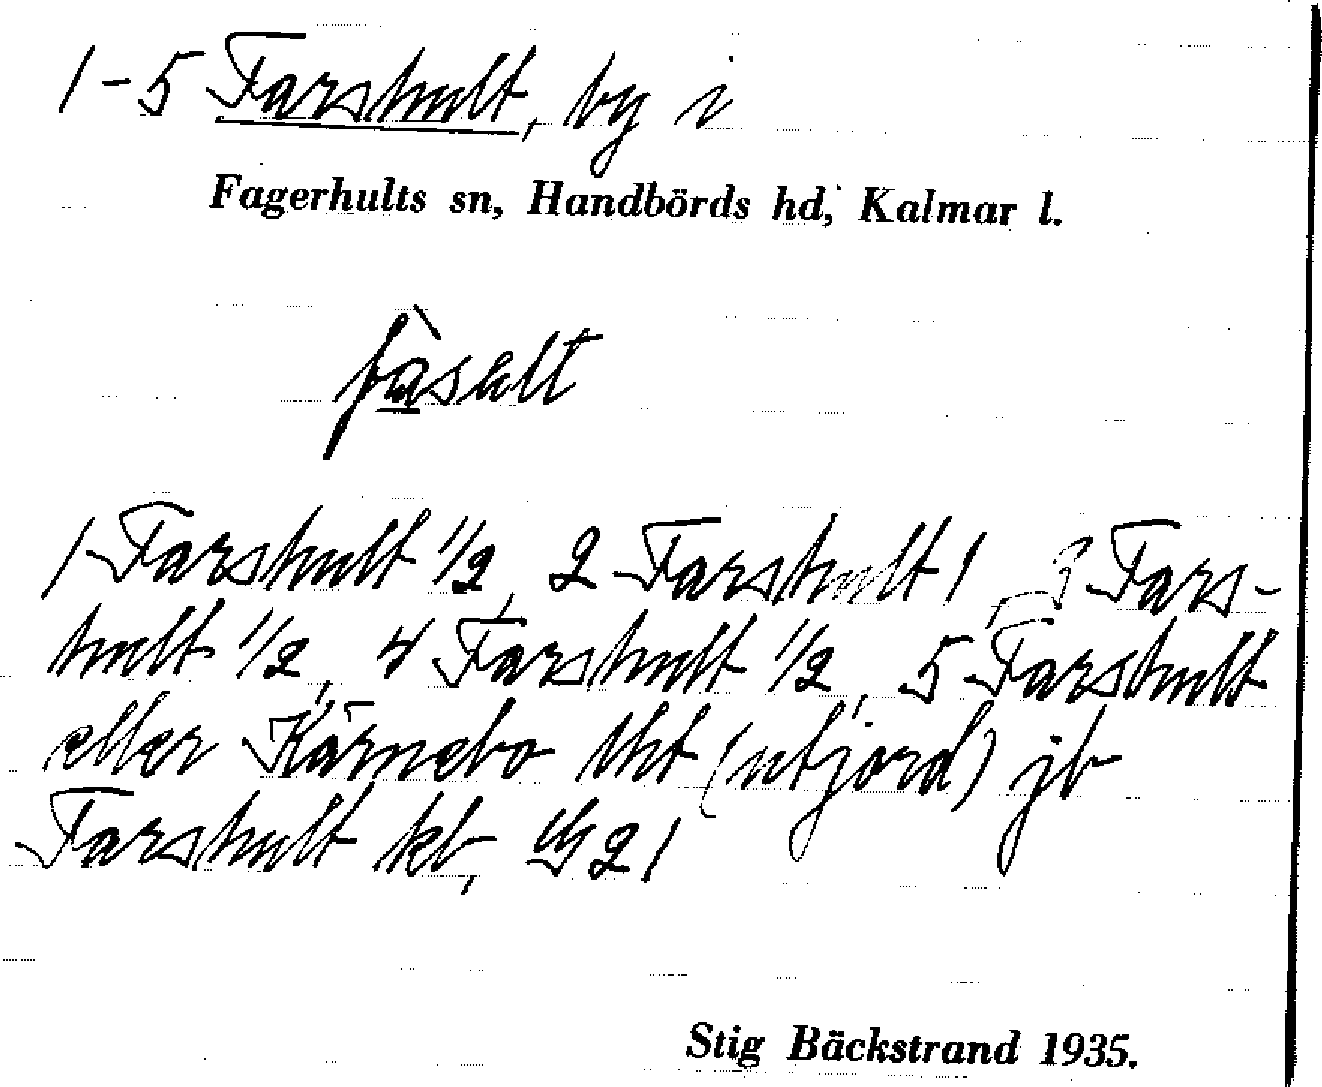 1-5 Farshult, by i
Fagerhults sn, Handbörds hd, Kalmar l.
fàsält
1 Farshult 1/2, 2 Farshult 1, 3 Fars-
hult 1/2, 4 Farshult 1/2, 5 Farshult
eller Kärnebo lht (utjord) jb
Farshult kb, 21
Stig Bäckstrand 1935.